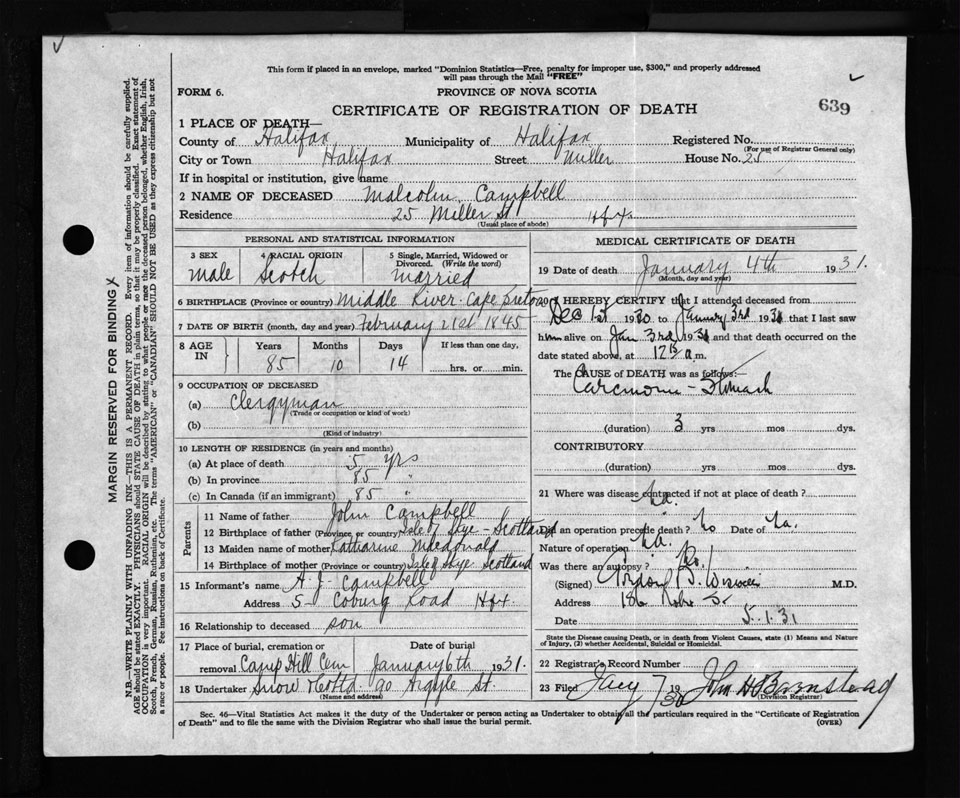 This form if placed in an envelope, marked "Dominion Statistics—Free, penalty for improper use, $300," and properly addressed
will pass through the Mail "FREE"
FORM 6.
PROVINCE OF NOVA SCOTIA
639
CERTIFICATE OF REGISTRATION OF DEATH
1 PLACE OF DEATH—
County of Halifax Municipality of Halifax Registered No.
(For use of Registrar General only)
City or Town Halifax Street Miller House No. 25
If in hospital or institution, give name
2 NAME OF DECEASED Malcolm Campbell
Residence 25 Miller St Hfx
(Usual place of abode)
PERSONAL AND STATISTICAL INFORMATION
3 SEX 4 RACIAL ORIGIN 5 Single, Married, Widowed or Divorced. (Write the word)
male Scotch married
6 BIRTHPLACE (Province or country) Middle River Cape Breton
7 DATE OF BIRTH (month, day and year) February 21st 1845
8 AGE IN Years Months Days If less than one day,
85 10 14 hrs. or min.
9 OCCUPATION OF DECEASED
(a) Clergyman
(Trade or occupation or kind of work)
(b)
(Kind of industry)
10 LENGTH OF RESIDENCE (in years and months)
(a) At place of death 5 yrs
(b) In province 85 "
(c) In Canada (if an immigrant) 85 "
Parents
11 Name of father John Campbell
12 Birthplace of father (Province or country) Isle of Skye - Scotland
13 Maiden name of mother Katharine Macdonald
14 Birthplace of mother (Province or country) Isle of Skye Scotland
15 Informant's name A. J. Campbell
Address 5 Coburg Road Hfx.
16 Relationship to deceased son
17 Place of burial, cremation or Date of burial
removal Camp Hill Cem January 6th 1931.
18 Undertaker Snow & Co Ltd 90 Argyle St.
(Name and address)
MEDICAL CERTIFICATE OF DEATH
19 Date of death January 4th 1931.
(Month, day and year)
20 I HEREBY CERTIFY that I attended deceased from
Dec 1st 1930 to January 3rd 1931 that I last saw
him alive on Jan 3rd 1931 and that death occurred on the
date stated above, at 12 a.m.
The CAUSE OF DEATH was as follows:—
Carcinoma - Stomach
(duration) 3 yrs mos dys.
CONTRIBUTORY
(duration) yrs mos dys.
21 Where was disease contracted if not at place of death?
Did an operation precede death? No Date of
Nature of operation
Was there an autopsy? No!
(Signed) Gordon B. M.D.
Address 186
Date 5.1.31
State the Disease causing Death, or in death from Violent Causes, state (1) Means and Nature
of Injury, (2) whether Accidental, Suicidal or Homicidal.
22 Registrar's Record Number
23 Filed Jany 7 1931 John H Barnstead
(Division Registrar)
Sec. 46—Vital Statistics Act makes it the duty of the Undertaker or person acting as Undertaker to obtain all the particulars required in the "Certificate of Registration
of Death" and to file the same with the Division Registrar who shall issue the burial permit. (OVER)
MARGIN RESERVED FOR BINDING
N.B.—WRITE PLAINLY WITH UNFADING INK—THIS IS A PERMANENT RECORD. Every item of information should be carefully supplied.
AGE should be stated EXACTLY. PHYSICIANS should STATE CAUSE OF DEATH in plain terms, so that it may be properly classified. Exact statement of
OCCUPATION is very important. RACIAL ORIGIN will be described by stating to what people or race the deceased person belonged, whether English, Irish,
Scotch, French, German, Russian, Ruthenian, etc. The terms "AMERICAN" or "CANADIAN" SHOULD NOT BE USED as they express citizenship but not
a race or people. See instructions on back of Certificate.